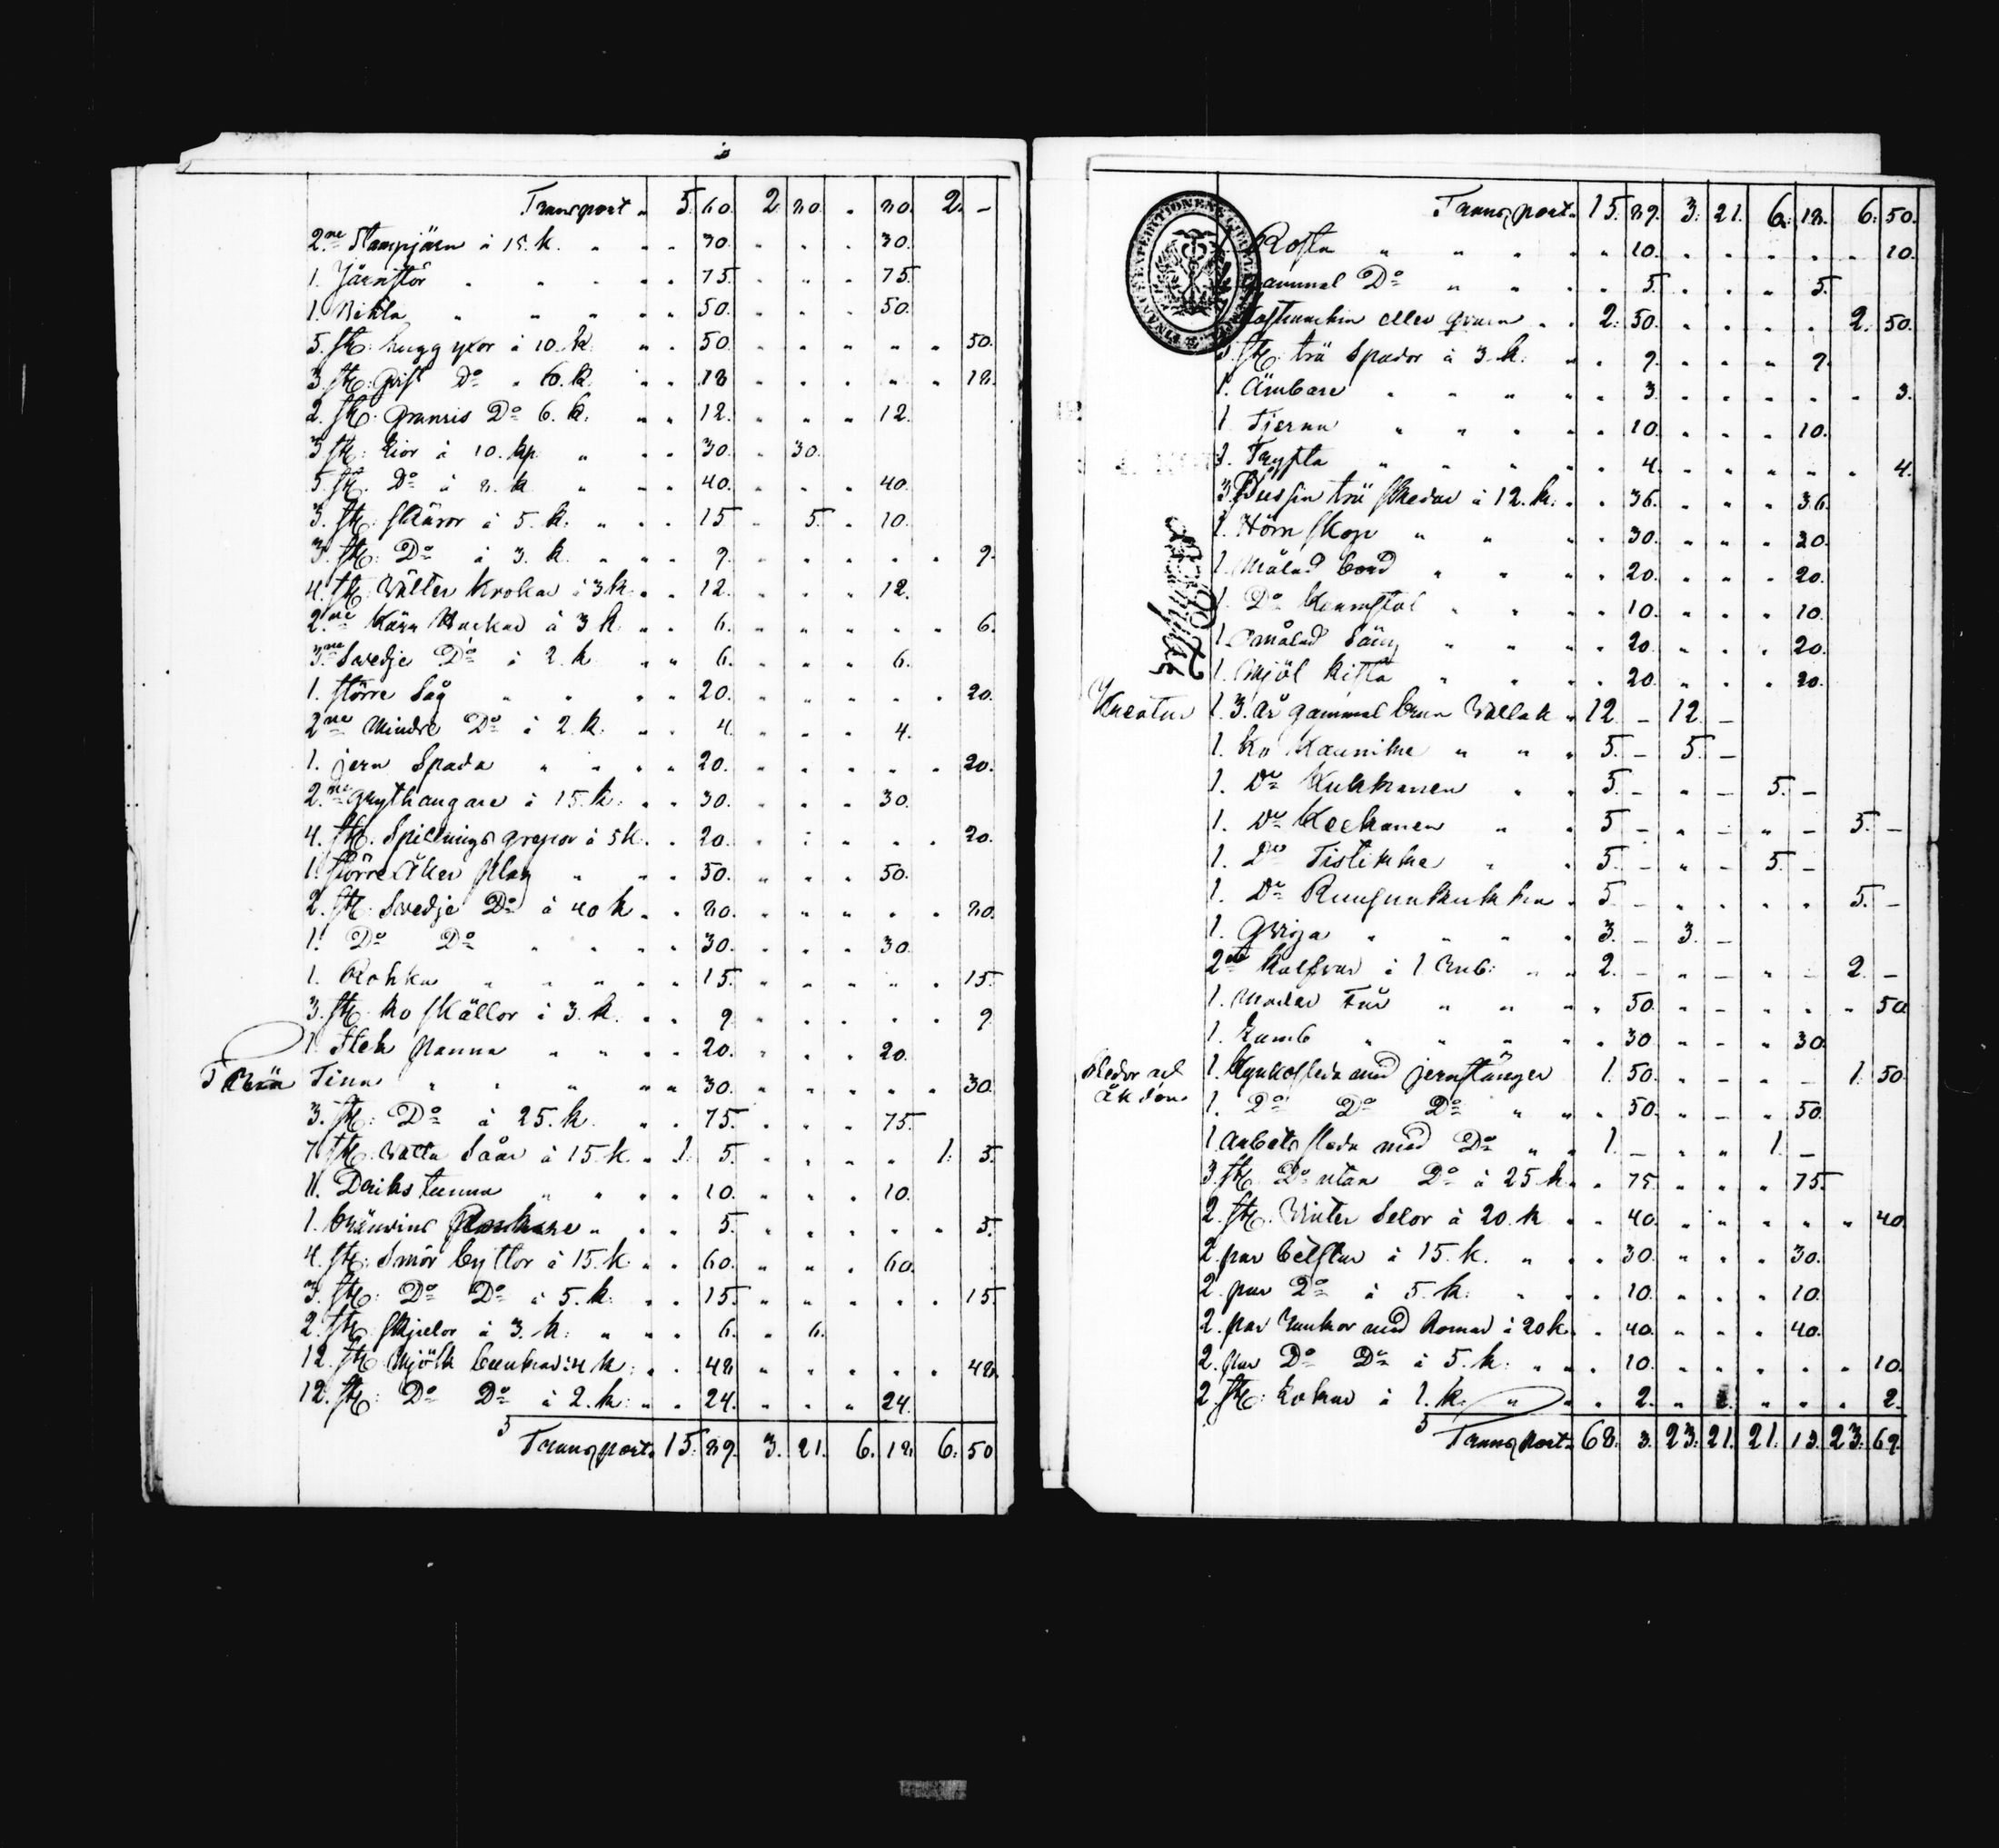 Transport „ 5. 60. 2. 80. „ 80. 2. –
2ne Stampjärn á 15. k. „ „ „ 30. „ „ „ 30.
1. Järnstör „ „ „ „ „ 75. „ „ „ 75.
1. Vikla „ „ „ „ „ 50. „ „ „ 50.
5. St: hugg yxor á 10. k. „ „ 50. „ „ „ „ „ 50.
3. St: Qvist Do „ 6. k. „ „ 18 „ „ „ „ „ 18.
2. St: Granris Do 6. k. „ „ 12. „ „ „ 12.
3 St: Lior á 10. kp. „ „ „ 30. „ 30.
5. St. Do á 8. k „ „ „ 40. „ „ „ 40.
3. St: Skäror á 5. k. „ „ „ 15 „ 5. „ 10.
3. St: Do á 3. k. „ „ „ 9. „ „ „ „ „ 9.
4. St: Välter Krokar á 3 k. „ „ 12. „ „ „ 12.
2.ne Kärr Hackar á 3 k. „ „ 6. „ „ „ „ „ 6.
3.ne Swedje Do á 2. k „ „ 6. „ „ „ 6.
1. större Såg „ „ „ „ 20. „ „ „ „ „ 20.
2ne Mindre Do á 2. k. „ „ 4. „ „ „ 4.
1. jern Spada „ „ „ „ 20. „ „ „ „ „ 20.
2.ne Grythangare á 15. k. „ „ 30. „ „ „ 30.
4. St. Spillnings grepor á 5 k. „ „ 20. „ „ „ „ „ 20.
1. större Åker Plog „ „ „ 50. „ „ „ 50.
2. St: Swedje Do á 40 k „ „ 80. „ „ „ „ „ 80.
1. Do Do „ „ „ „ 30. „ „ „ 30.
1. Rohka „ „ „ „ „ 15. „ „ „ „ „ 15.
3. St: Ko Skällor á 3. k. „ „ 9. „ „ „ „ „ 9.
1. Stek Panna „ „ „ „ 20. „ „ „ 20.
Trän Tina „ „ „ „ „ 30. „ „ „ „ „ 30.
3. St: Do á 25. k. „ „ 75. „ „ „ 75.
7 St: Vatta Såar á 15 k. „ 1. 5. „ „ „ „ 1. 5.
11. Driks tunna „ „ „ „ 10. „ „ „ 10.
1. bränvins „ „ „ 5. „ „ „ „ „ 5.
4. St: Smör byttor á 15. k: „ „ 60. „ „ „ 60.
3. St: Do Do á 5. k: „ „ 15. „ „ „ „ „ 15.
2. St: Skjelor á 3. k: „ „ „ 6. „ 6.
12. St: Mjölk bunkar á 4 k: „ „ 48 „ „ „ „ „ 48.
12. St: Do Do á 2. k: „ „ 24. „ „ „ 24.
Transport „ 15. 89. 3. 21. 6. 18. 6. 50
Transport „ 15. 89. 3. 21. 6. 18. 6. 50.
Rosta „ „ „ „ „ 10. „ „ „ „ „ 10.
gammal Do „ „ „ „ 5. „ „ „ 5.
eller qvarn „ „ 2. 50. „ „ „ „ 2. 50.
3. St: trä Spador á 3. k: „ „ 9. „ „ „ 9.
1. Ämbare „ „ „ „ „ 3. „ „ „ „ „ 3.
1 Tjerna „ „ „ „ „ 10. „ „ „ 10.
1. „ „ „ „ „ 4. „ „ „ „ „ 4.
3. Dussin trä Skedar á 12. k: „ „ 36. „ „ „ 36.
1. Hörn Skop „ „ „ „ 30. „ „ „ 30.
1. Målad bord „ „ „ „ 20. „ „ „ 20.
1. Do „ „ „ 10. „ „ „ 10.
1. omålad Säng „ „ „ „ 20. „ „ „ 20.
1. Mjöl kista „ „ „ „ 20. „ „ „ 20.
Kreatur 1. 3. år gammal brun Vallak „ 12. – 12. –
1. Ko Kaunike „ „ „ 5. – 5. –
1. Do Kukkanen „ „ 5. – „ – 5. –
1. Do „ „ 5 – „ – „ – 5. –
1. Do Tistikke „ „ 5. – „ – 5. –
1. Do „ 5. – „ „ „ „ 5. –
1. Qviga „ „ „ „ 3. – 3. –
2ne Kalfvar á 1 Rub: „ „ 2. – „ – „ – 2. –
1. Moder Får „ „ „ „ 50. „ – „ „ „ 50
1. Lamb „ „ „ „ „ 30. „ – „ 30
Sledor och åkdon 1. Kyrkosleda med jernstänger 1. 50. „ – „ – 1. 50.
1. Do Do Do „ „ „ 50. „ – „ 50.
1 Arbets sleda med Do „ „ 1. – „ „ 1. –
3. St: Do utan Do á 25 k. „ „ 75. „ „ „ 75.
2. St. Vinter Selor á 20. k „ „ 40. „ „ „ „ „ 40.
2. par betslar á 15. k. „ „ „ 30. „ „ „ 30.
2. par Do á 5. k: „ „ „ 10. „ „ „ 10.
2. par med Remar á 20 k. „ „ 40. „ „ „ 40.
2. par Do Do á 5. k: „ „ „ 10. „ „ „ „ „ 10.
2. St: á 1. k: „ „ „ 2. „ „ „ „ 2.
Transport „ 68. 3. 23. 21. 21. 13. 23. 69.